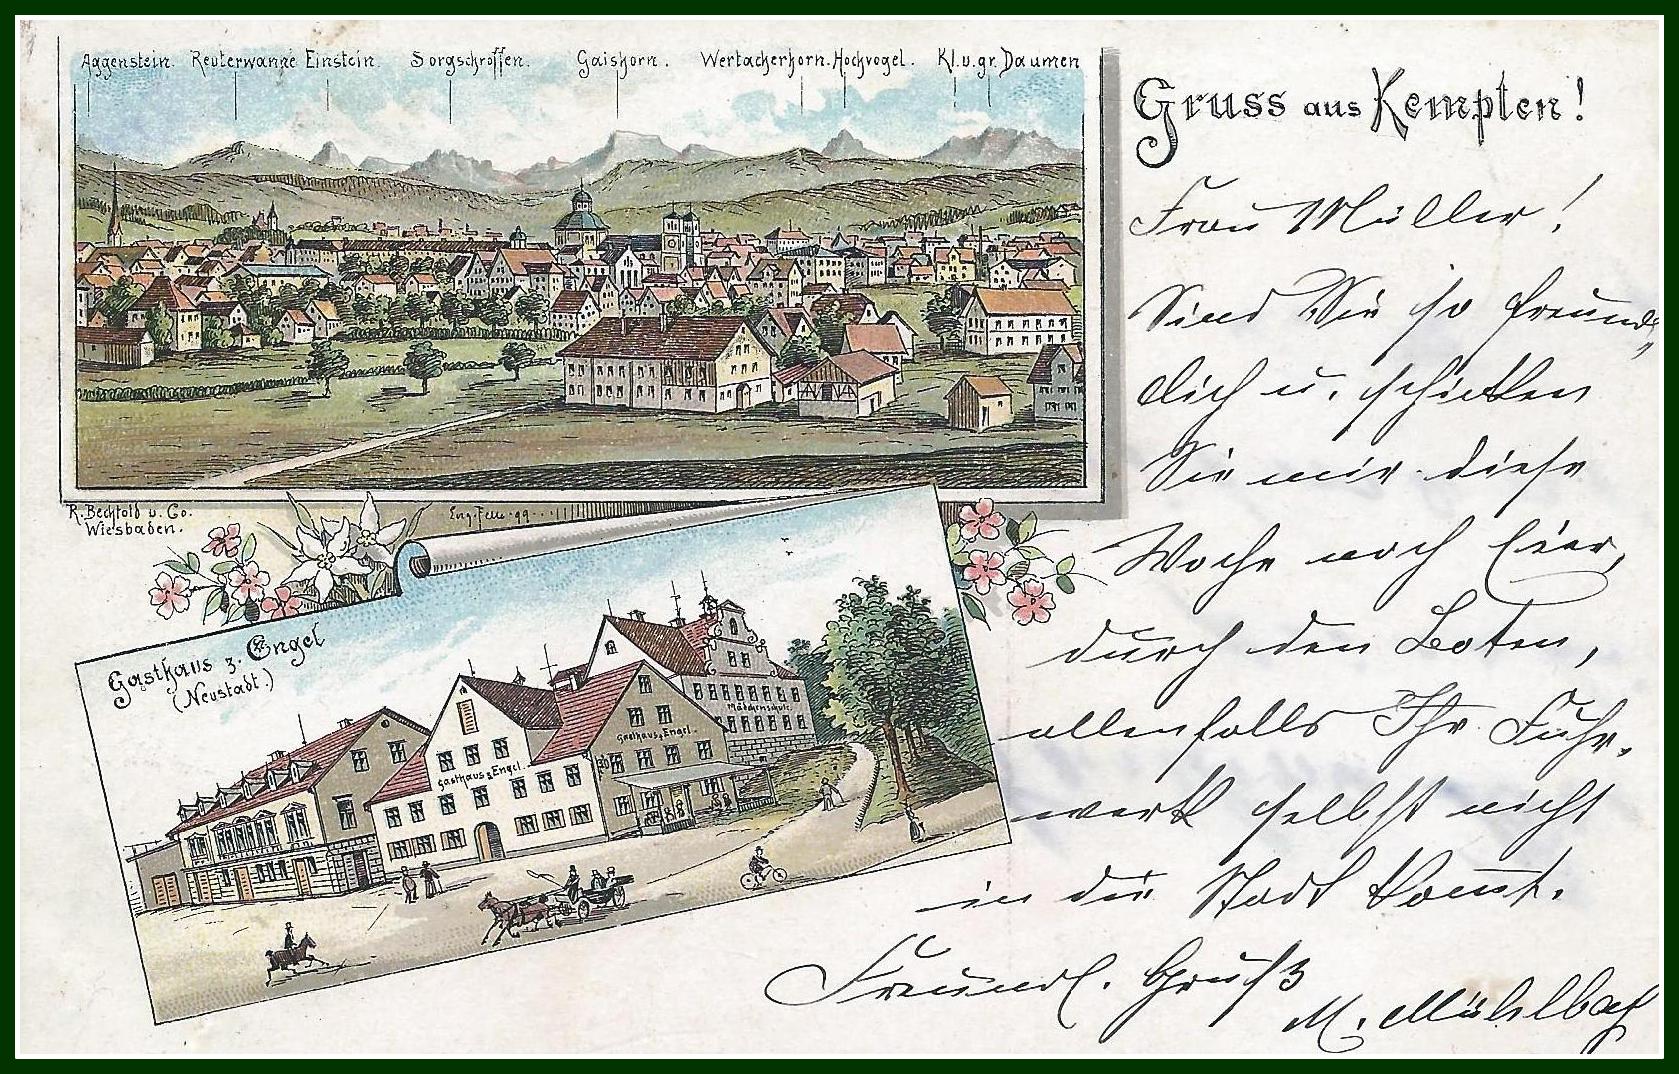 Aggenstein. Reuterwanne Einstein. Sorgschroffen. Gaishorn. Wertacherhorn. Hochvogel. Kl. u. gr. Daumen
Gruss aus Kempten!
Frau Müller!
Sind Sie so freund„
lich u. schicken
Sie mir diese
Woche noch Eier,
durch den Boten,
allenfalls Ihr Fuhr„
werk selbst nicht
in die Stadt kom̅t.
Freundl. Gruß
M. Mühlbach
R. Bechtold u. Co.
Wiesbaden.
Eug. Felle. 99
Gasthaus z. Engel
(Neustadt.)
Mädchenschule
Gasthaus z. Engel.
Gasthaus z. Engel.